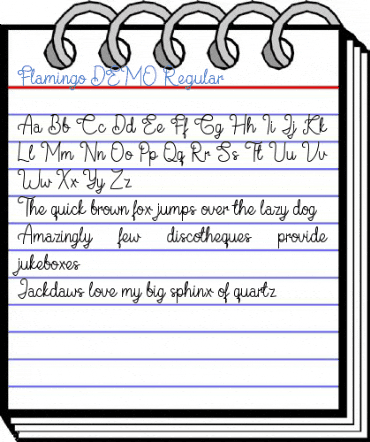 Flamingo DEMO Regular
Aa Bb Cc Dd Ee Ff Gg Hh Ii Jj Kk
Ll Mm Nn Oo Pp Qq Rr Ss Tt Uu Vv
Ww Xx Yy Zz
The quick brown fox jumps over the lazy dog
Amazingly few discotheques provide
jukeboxes
Jackdaws love my big sphinx of quartz